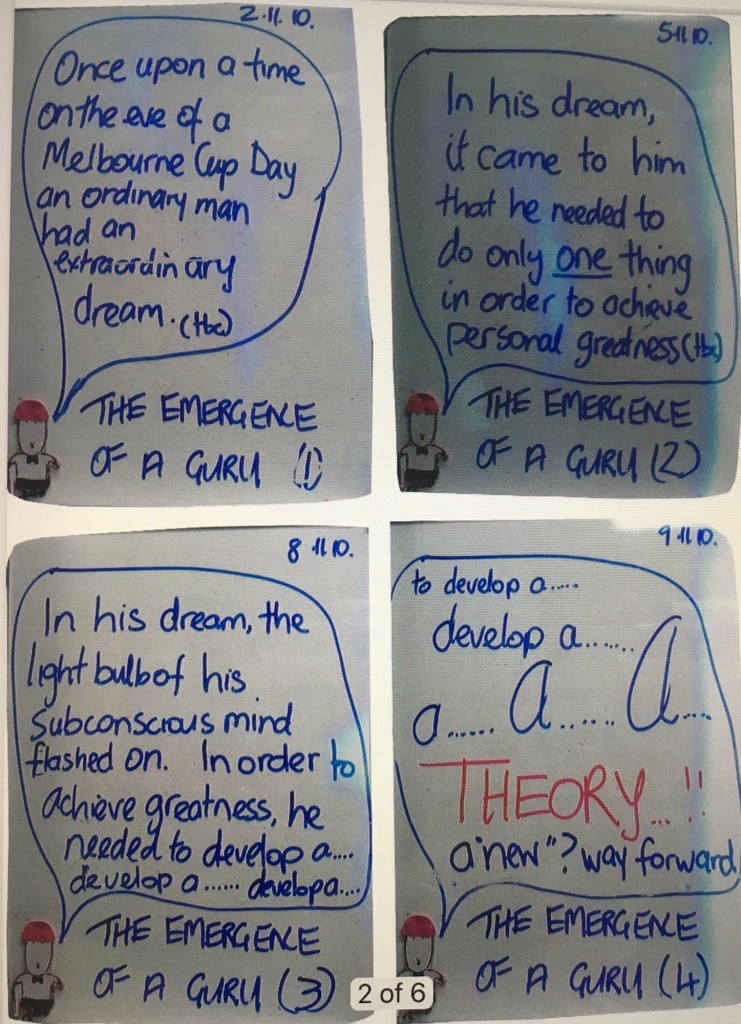 2.11.10.
Once upon a time
on the eve of a
Melbourne Cup Day
an ordinary man
had an
extraordinary
dream. (tbc)
THE EMERGENCE
OF A GURU (1)
5.11.10.
In his dream,
it came to him
that he needed to
do only one thing
in order to achieve
personal greatness (tbc)
THE EMERGENCE
OF A GURU (2)
8.11.10.
In his dream, the
light bulb of his
subconscious mind
flashed on. In order to
achieve greatness, he
needed to develop a....
develop a ...... develop a....
THE EMERGENCE
OF A GURU (3)
9.11.10.
to develop a.....
develop a.......
a...... a...... a....
THEORY...!!
a "new"? way forward
THE EMERGENCE
OF A GURU (4)
2 of 6